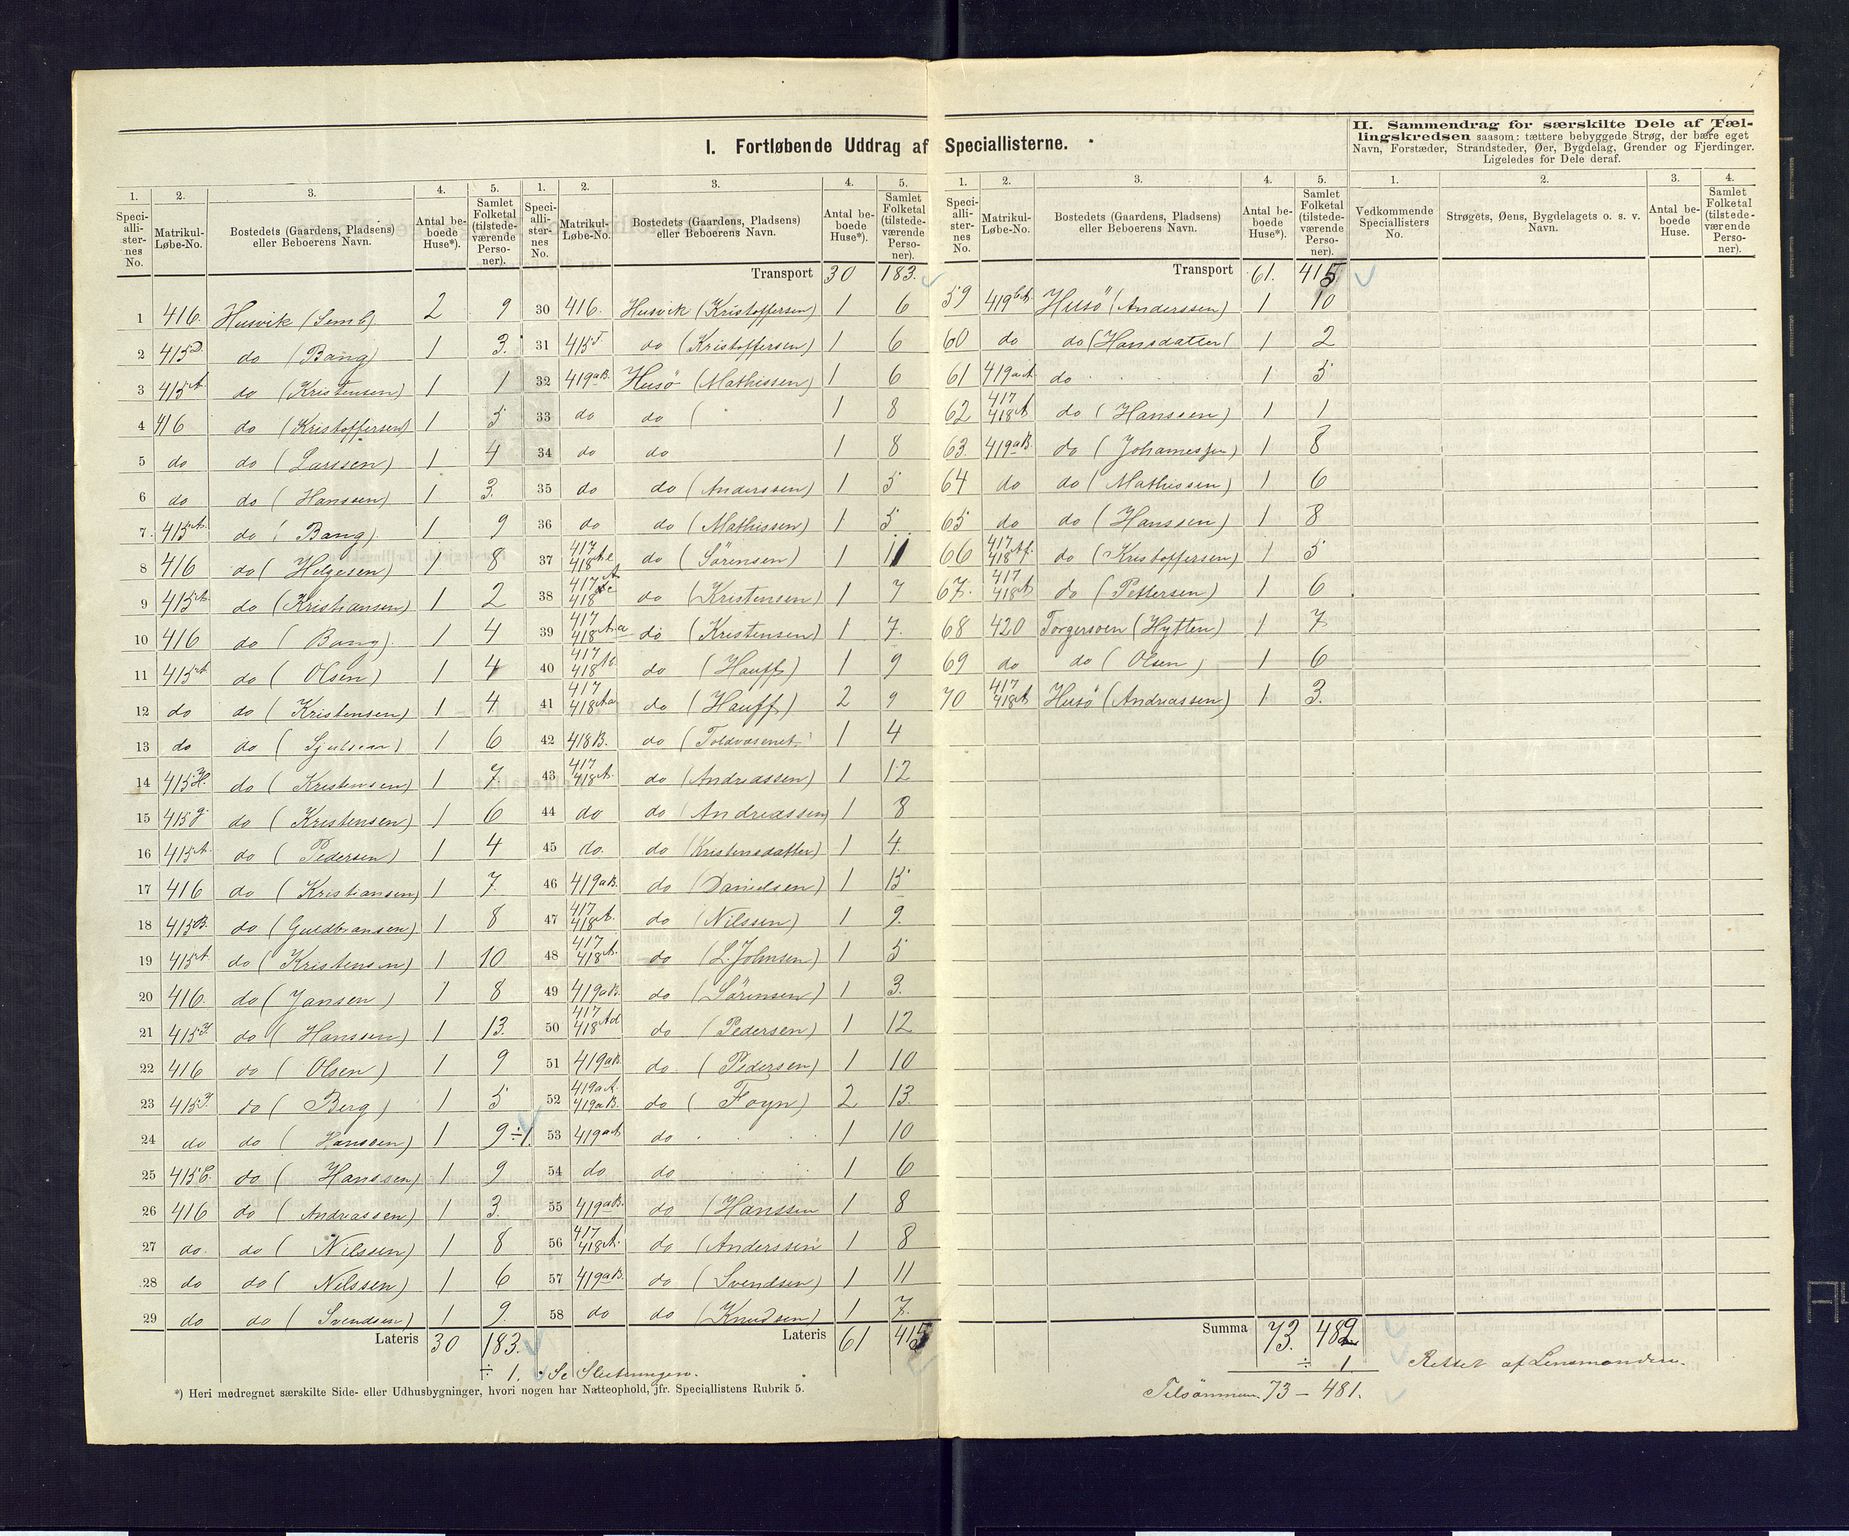 I. Fortløbende Uddrag af Speciallisterne.
II. Sammendrag for særskilte Dele af Tæl-
lingskredsen saasom: tættere bebyggede Strøg, der bære eget
Navn, Forstæder, Strandsteder, Øer, Bygdelag, Grender og Fjerdinger.
Ligeledes for Dele deraf.
1. 2. 3. 4. 5.
Speciallisternes No. Matrikul-Løbe-No. Bostedets (Gaardens, Pladsens) eller Beboerens Navn. Antal beboede Huse*). Samlet Folketal (tilstedeværende Personer).
1 416. Husvik (Semb) 2 9
2 415D. do (Bang) 1 3.
3 415A. do (Kristensen) 1 1
4 416 do (Kristoffersen) 1 5
5 do do (Larssen) 1 4
6 do do (Hanssen) 1 3.
7. 415A. do (Bang) 1 9
8 416 do (Helgesen) 1 8
9 415A. do (Kristiansen) 1 2
10 416 do (Bang) 1 4
11 415A do (Olsen) 1 4
12 do do (Kristensen) 1 4
13 do do 1 6
14 415H. do (Kristensen) 1 7.
15 415g do (Kristensen) 1 6
16 415A. do (Pedersen) 1 4
17 416 do (Kristiansen) 1 7.
18 415B. do (Guldbransen) 1 8
19 415A. do (Kristensen) 1 10
20 416. do (Jansen) 1 8
21 415 do (Hanssen) 1 13.
22 416 do (Olsen) 1 9
23 415 do (Berg) 1 5
24 do do (Hanssen) 1 9 ÷1.
25 415 do (Hanssen) 1 9
26 416 do (Andreassen) 1 3.
27 do. do (Nilssen) 1 8
28 do do (Nilssen) 1 6
29 do do (Svendsen) 1 9.
Lateris 30 183.
÷ 1. Se Slutningen.
*) Heri medregnet særskilte Side- eller Udhusbygninger, hvori nogen har Natteophold, jfr. Speciallistens Rubrik 5.
1. 2. 3. 4. 5.
Speciallisternes No. Matrikul-Løbe-No. Bostedets (Gaardens, Pladsens) eller Beboerens Navn. Antal beboede Huse*). Samlet Folketal (tilstedeværende Personer).
Transport 30 183.
30 416. Husvik (Kristoffersen) 1 6
31 415 do (Kristoffersen) 1 6
32 419aB. Husö (Mathissen) 1 6
33 do do ( 1 8
34 do do 1 8
35 do do (Anderssen) 1 5
36 do do (Mathissen) 1 5
37 417 418Ae do (Sörensen) 1 11
38 417 418 do (Kristensen) 1 7
39 417 418Aa do (Kristensen) 1 7.
40 417 418 do (Hauff) 1 9
41 417 418Aa do (Hauff) 2 9
42 418B. do (Toldvæsenet) 1 4
43 417 418A. do (Andreassen) 1 12
44 do do (Andreassen) 1 8
45 do. do (Kristensdatter) 1 4.
46 419aB. do (Danielsen) 1 15
47 417 418A. do (Nilssen) 1 9.
48 417 418A. do (L. Johnsen) 1 5
49 419aB. do (Sörensen) 1 3.
50 417 418Ad do (Pedersen) 1 12
51 419aB. do. (Pedersen) 1 10
52 419aA. 419aB. do (Foyn) 2 13.
53 419aA do 1 10
54 do do 1 6
55 419aB. do (Hanssen 1 8
56 417 418A. do (Anderssen 1 8
57 419aB. do (Svendsen) 1 11
58 do do (Knudsen) 1 7.
Lateris 61 415
1. 2. 3. 4. 5.
Speciallisternes No. Matrikul-Løbe-No. Bostedets (Gaardens, Pladsens) eller Beboerens Navn. Antal beboede Huse*). Samlet Folketal (tilstedeværende Personer).
Transport 61. 415
59 419bA. Husö (Anderssen) 1 10
60 do do (Hansdatter( 1 2
61 419aA. do 1 5
62 417 418A do (Hanssen) 1 1
63. 419aB. do (Johannessen) 1 8
64 do do (Mathissen) 1 6
65 do do (Hanssen) 1 8
66 417 418Af. do (Kristoffersen) 1 5
67. 417 418A do (Pettersen) 1 6
68 420 Torgersöen (Hytten) 1 7
69 do do (Olsen) 1 6
70 417 418A Husö (Andreassen) 1 3.
Summa 73. 482
÷ 1 Rettet af Lensmanden.
Tilsammen. 73 — 481.
1. 2. 3. 4.
Vedkommende Speciallisters No. Strøgets, Øens, Bygdelagets o. s. v. Navn. Antal beboede Huse. Samlet Folketal (tilstedeværende Personer).